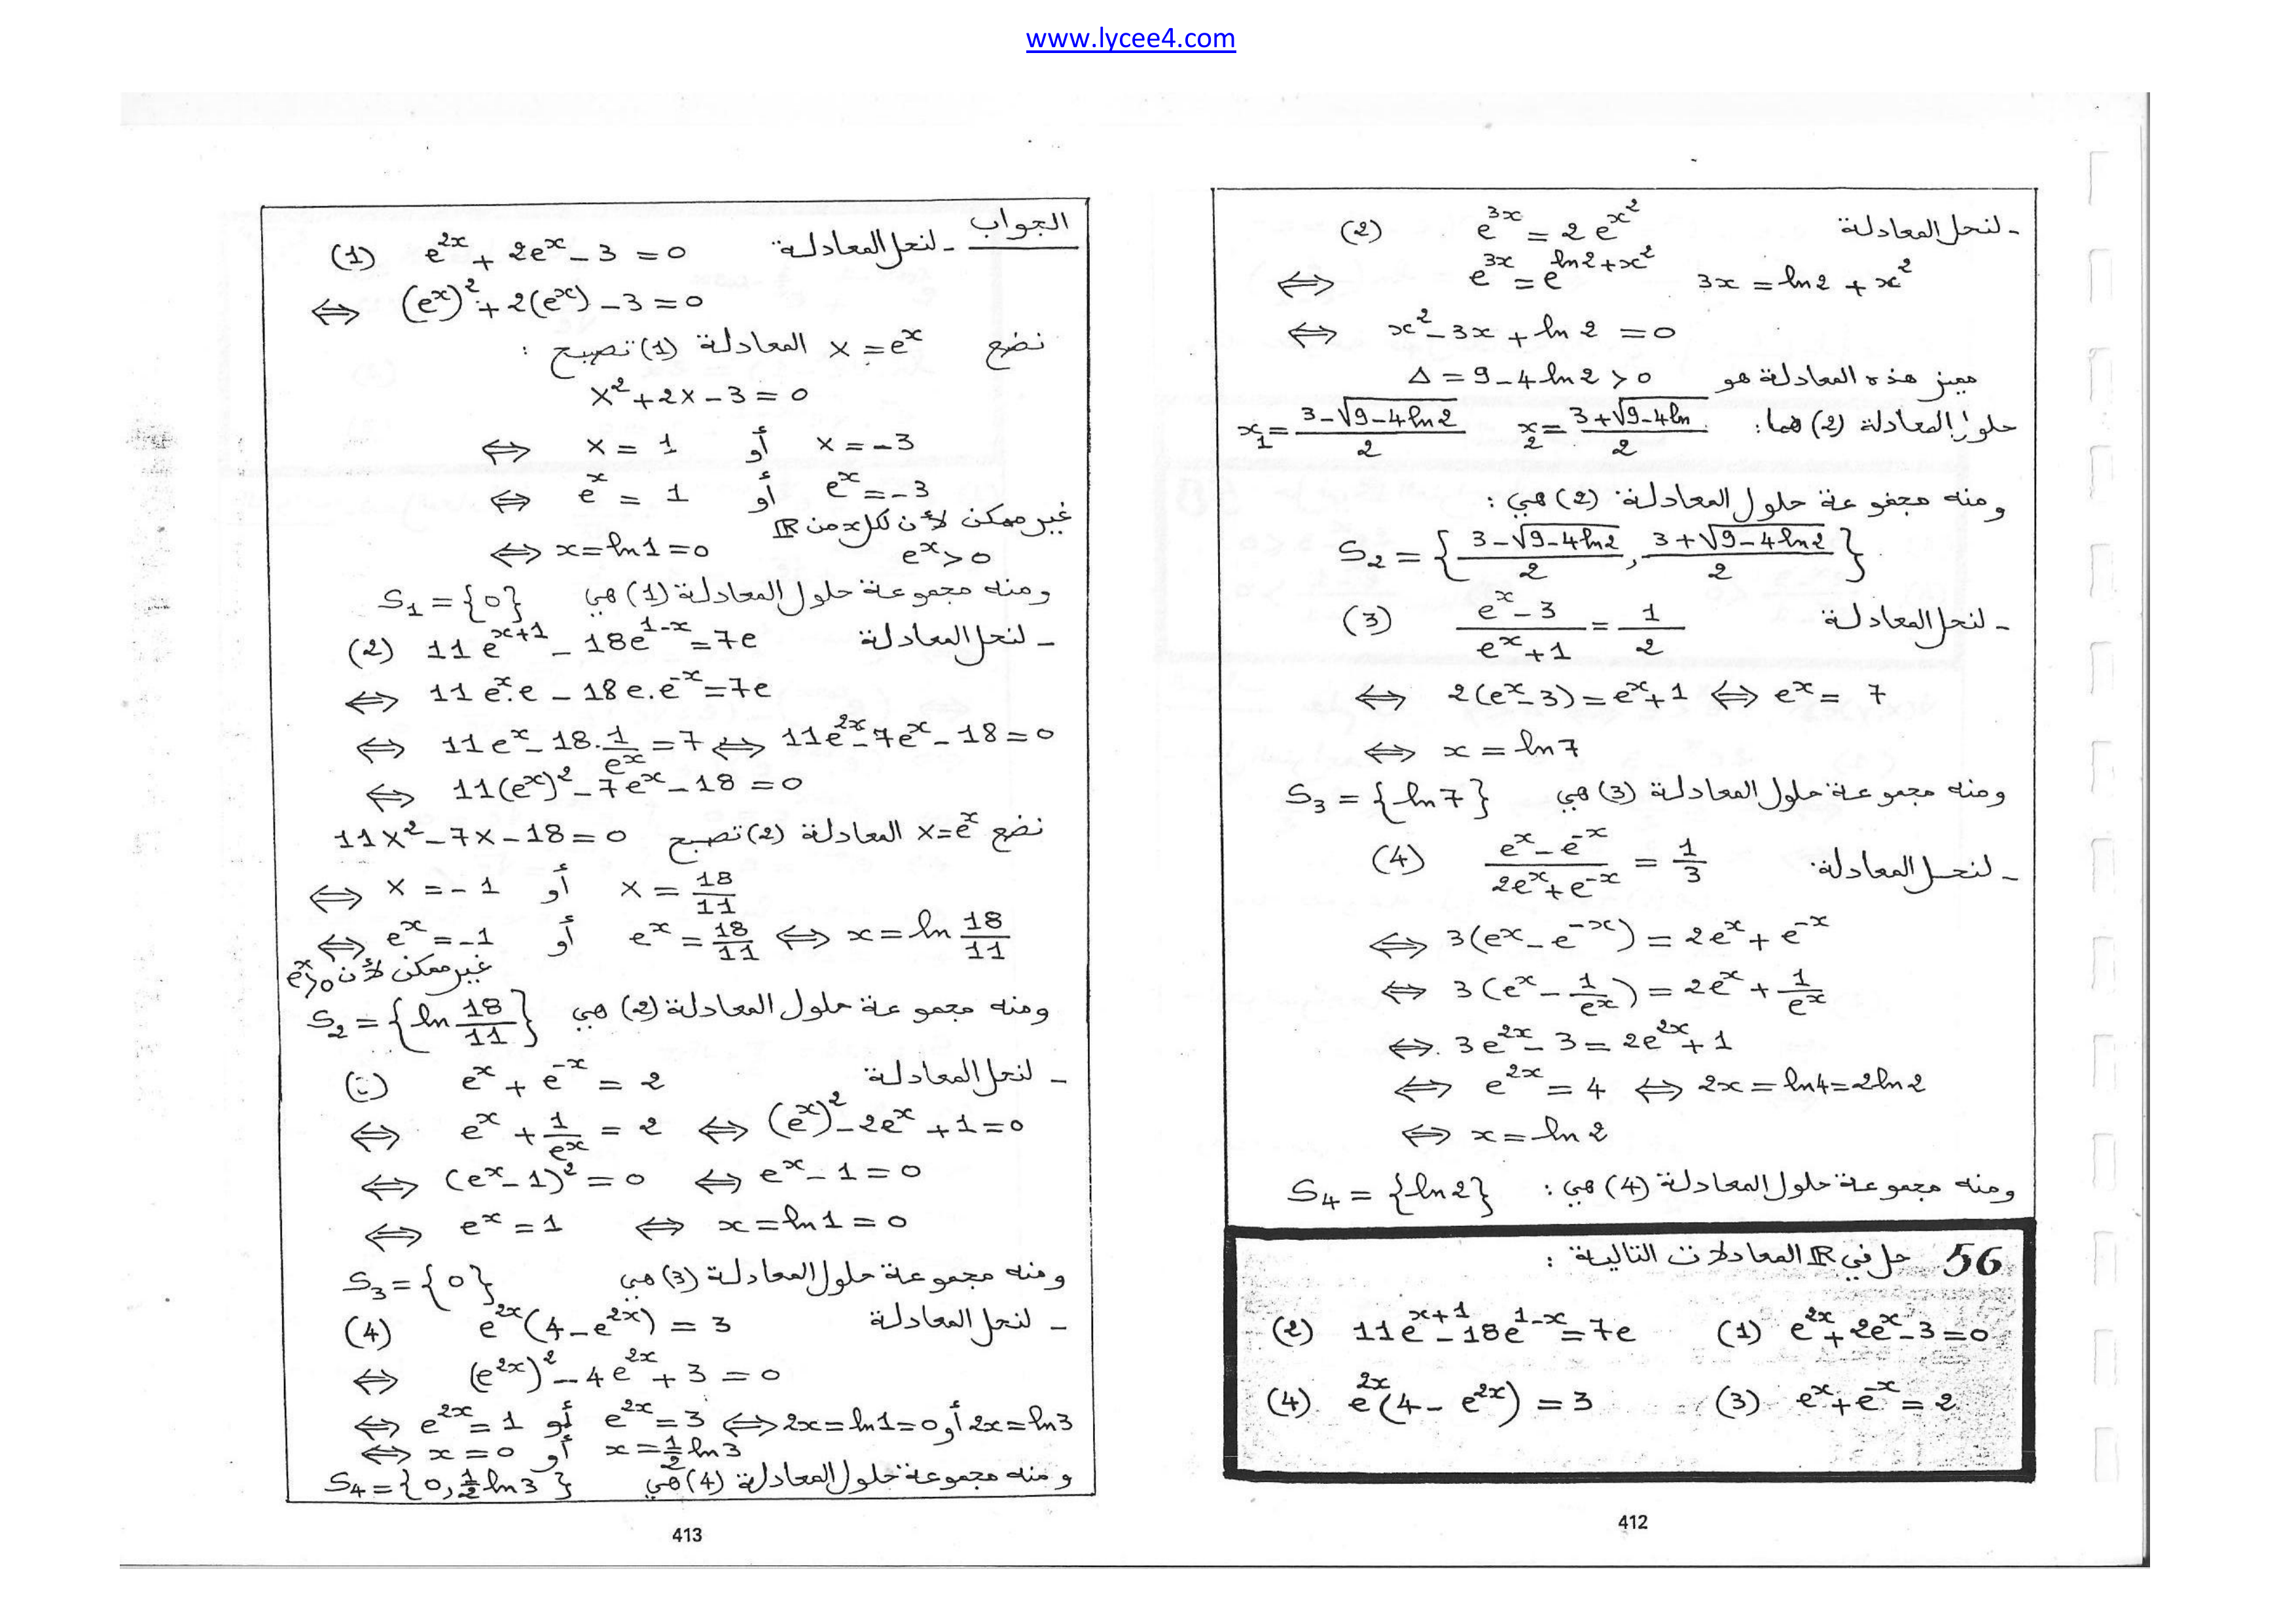 www.lycee4.com
ـ لنحل المعادلة e^{3x} = 2e^{x^2} (2)
⟺ e^{3x} = e^{ln2+x^2} 3x = ln2 + x^2
⟺ x^2 - 3x + ln 2 = 0
مميز هذه المعادلة هو Δ = 9 - 4 ln 2 > 0
حلول المعادلة (2) هما: x_1 = \frac{3-\sqrt{9-4ln2}}{2} x_2 = \frac{3+\sqrt{9-4ln}}{2}
ومنه مجموعة حلول المعادلة (2) هي:
S_2 = {\frac{3-\sqrt{9-4ln2}}{2}, \frac{3+\sqrt{9-4ln2}}{2}}
ـ لنحل المعادلة \frac{e^x-3}{e^x+1} = \frac{1}{2} (3)
⟺ 2(e^x-3) = e^x+1 ⟺ e^x = 7
⟺ x = ln7
ومنه مجموعة حلول المعادلة (3) هي S_3 = {ln7}
ـ لنحل المعادلة \frac{e^x-e^{-x}}{2e^x+e^{-x}} = \frac{1}{3} (4)
⟺ 3(e^x-e^{-x}) = 2e^x+e^{-x}
⟺ 3(e^x-\frac{1}{e^x}) = 2e^x+\frac{1}{e^x}
⟺ 3e^{2x}-3 = 2e^{2x}+1
⟺ e^{2x} = 4 ⟺ 2x = ln4 = 2ln2
⟺ x = ln2
ومنه مجموعة حلول المعادلة (4) هي: S_4 = {ln2}
56 حل في ℝ المعادلات التالية:
(1) e^{2x}+2e^x-3=0 (2) 11e^{x+1}-18e^{1-x}=7e
(3) e^x+e^{-x}=2 (4) e^{2x}(4-e^{2x})=3
412
الجواب ـ لنحل المعادلة e^{2x}+2e^x-3=0 (1)
⟺ (e^x)^2+2(e^x)-3=0
نضع X=e^x المعادلة (1) تصبح:
X^2+2X-3=0
⟺ X=1 أو X=-3
⟺ e^x=1 أو e^x=-3
غير ممكن لأن لكل x من ℝ
⟺ x=ln1=0 e^x>0
ومنه مجموعة حلول المعادلة (1) هي S_1={0}
ـ لنحل المعادلة 11e^{x+1}-18e^{1-x}=7e (2)
⟺ 11e^x.e-18e.e^{-x}=7e
⟺ 11e^x-18.\frac{1}{e^x}=7 ⟺ 11e^{2x}-7e^x-18=0
⟺ 11(e^x)^2-7e^x-18=0
نضع X=e^x المعادلة (2) تصبح 11X^2-7X-18=0
⟺ X=-1 أو X=\frac{18}{11}
⟺ e^x=-1 أو e^x=\frac{18}{11} ⟺ x=ln\frac{18}{11}
غير ممكن لأن e^x>0
ومنه مجموعة حلول المعادلة (2) هي S_2={ln\frac{18}{11}}
ـ لنحل المعادلة e^x+e^{-x}=2
⟺ e^x+\frac{1}{e^x}=2 ⟺ (e^x)^2-2e^x+1=0
⟺ (e^x-1)^2=0 ⟺ e^x-1=0
⟺ e^x=1 ⟺ x=ln1=0
ومنه مجموعة حلول المعادلة (3) هي S_3={0}
ـ لنحل المعادلة e^{2x}(4-e^{2x})=3 (4)
⟺ (e^{2x})^2-4e^{2x}+3=0
⟺ e^{2x}=1 أو e^{2x}=3 ⟺ 2x=ln1=0 أو 2x=ln3
⟺ x=0 أو x=\frac{1}{2}ln3
ومنه مجموعة حلول المعادلة (4) هي S_4={0,\frac{1}{2}ln3}
413